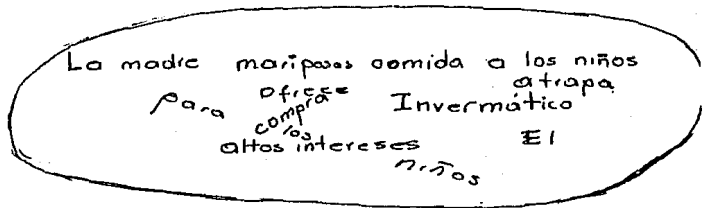 La madre mariposas comida a los niños
atrapa
Ofrece
Para compra Invermático
los
altos intereses El
niños